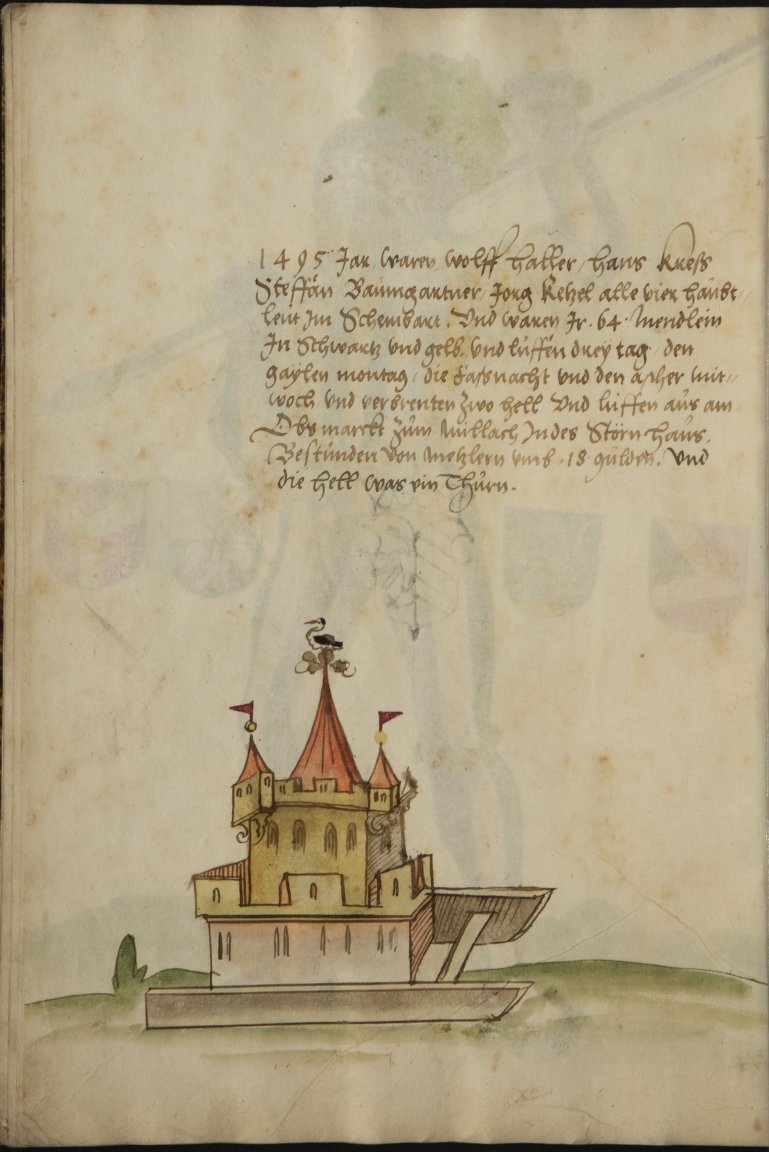 1495 Jar waren wolff haller / hans Kress
Steffan Baumgartner / Jorg Ketzel alle vier haubt-
leut Im Schembart. Vnd waren Ir. 64. Mendlein
In Schwartz vnd gelb vnd luffen drey tag den
gaylen montag / die Fassnacht vnd den ascher mit-
woch vnd verbrenten zwo hell Vnd luffen aus am
Obs marckt zum in des Störn haus.
Bestunden von metzlern vmb. 18 gulden. Vnd
die hell was ein Thurn.